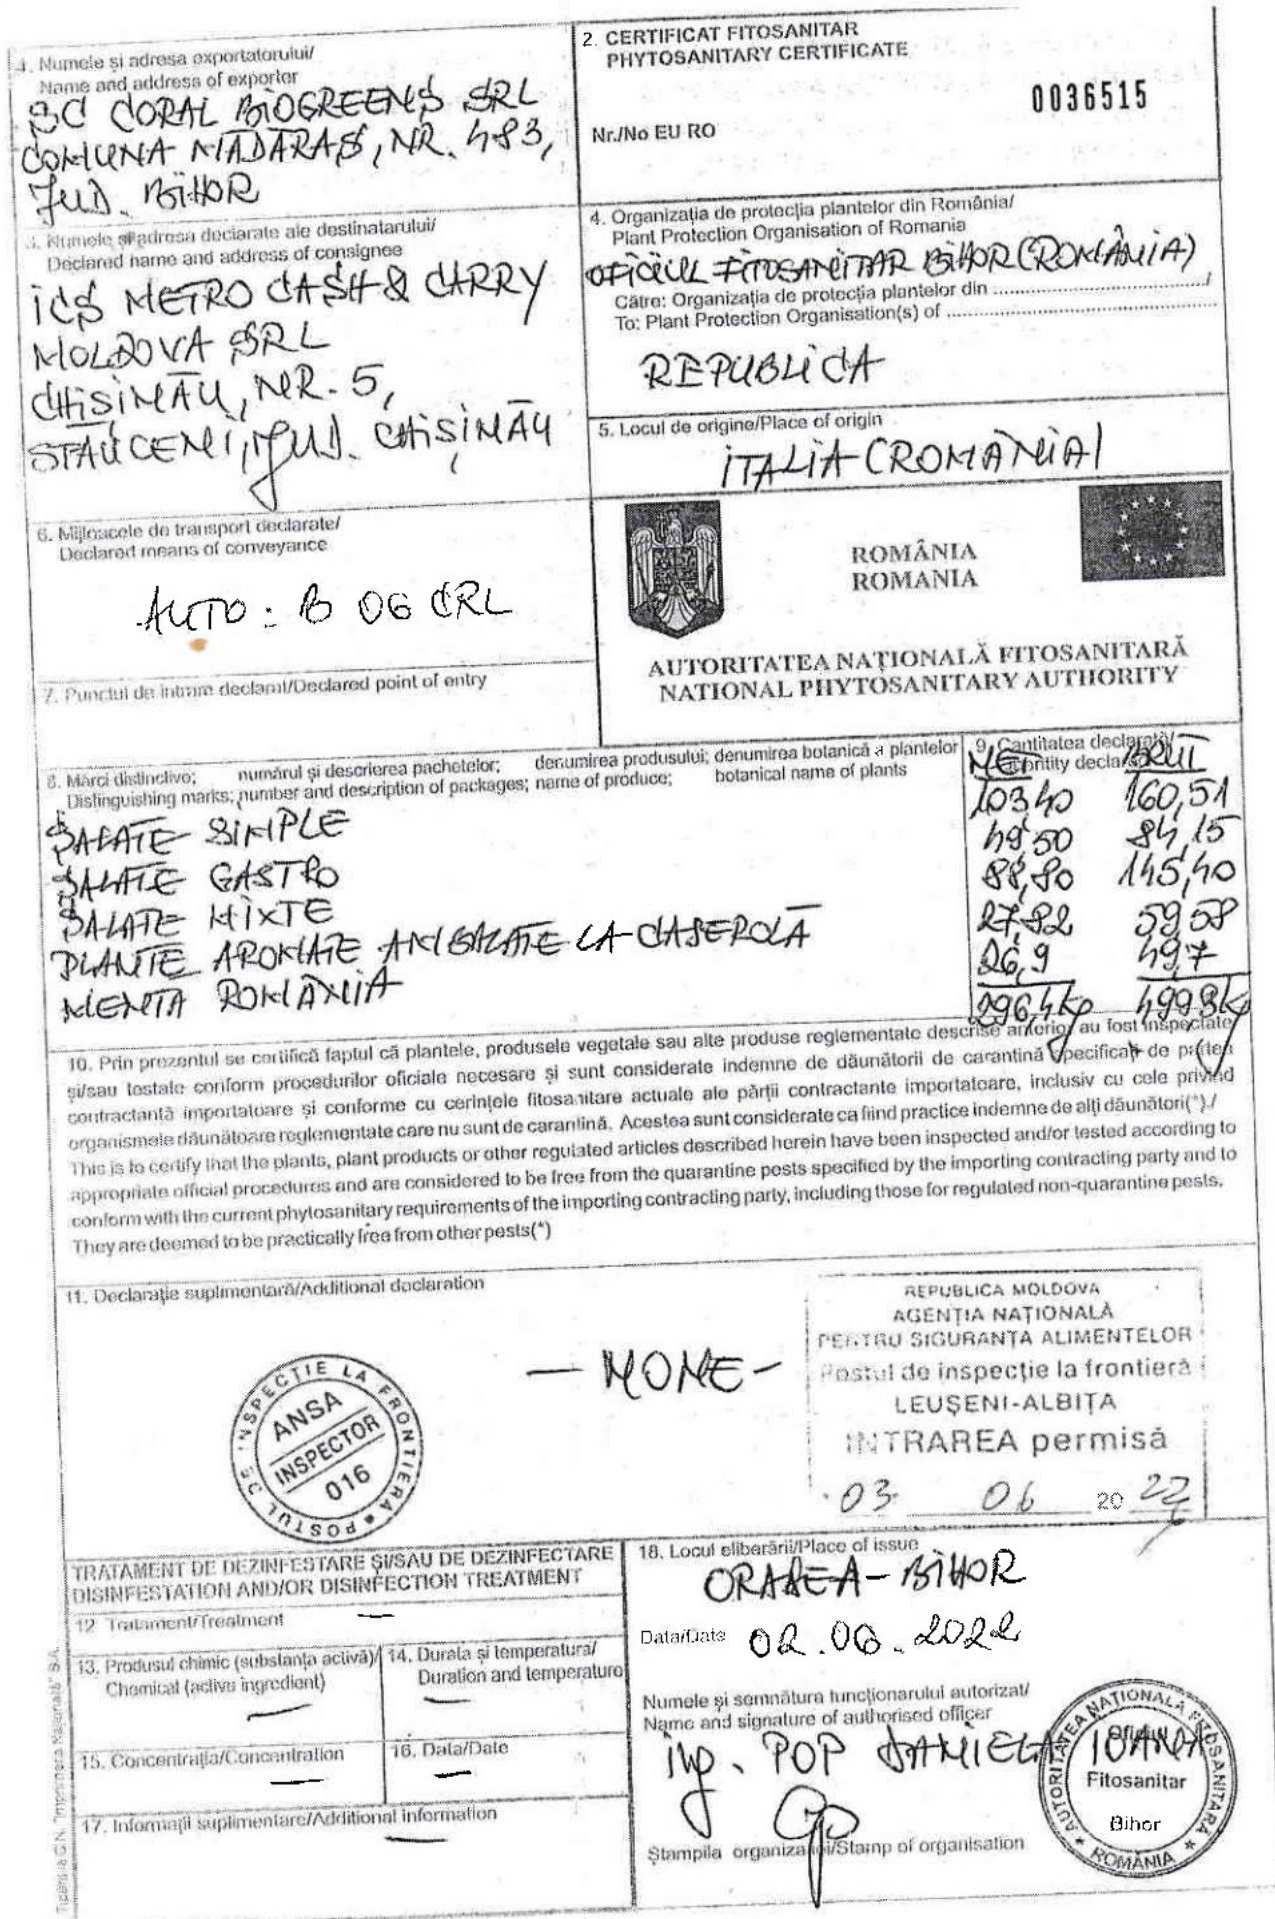 1. Numele și adresa exportatorului/
Name and address of exporter
SC CORAL BIOGREENS SRL
COMUNA MADARAS, NR. 483,
JUD. BIHOR
2. CERTIFICAT FITOSANITAR
PHYTOSANITARY CERTIFICATE
0036515
Nr./No EU RO
3. Numele și adresa declarate ale destinatarului/
Declared name and address of consignee
ICS METRO CASH & CARRY
MOLDOVA SRL
CHIȘINĂU, NR. 5,
STAUCENI, JUD. CHIȘINĂU
4. Organizația de protecția plantelor din România/
Plant Protection Organisation of Romania
OFICIUL FITOSANITAR BIHOR (ROMÂNIA)
Către: Organizația de protecția plantelor din ...../
To: Plant Protection Organisation(s) of .....
REPUBLICA
5. Locul de origine/Place of origin
ITALIA (ROMÂNIA)
6. Mijloacele de transport declarate/
Declared means of conveyance
AUTO: B 06 CRL
ROMÂNIA
ROMANIA
AUTORITATEA NAȚIONALĂ FITOSANITARĂ
NATIONAL PHYTOSANITARY AUTHORITY
7. Punctul de intrare declarat/Declared point of entry
8. Mărci distinctive; numărul și descrierea pachetelor; denumirea produsului; denumirea botanică a plantelor
Distinguishing marks; number and description of packages; name of produce; botanical name of plants
9. Cantitatea declarată/
Quantity declared
NET BRUT
SALATE SIMPLE 103,40 160,51
SALATE GASTRO 49,50 84,15
SALATE MIXTE 88,80 145,40
PLANTE AROMATE AMBALATE LA CASEROLĂ 27,82 59,58
MENTA ROMÂNIA 26,9 49,7
296,4 kg 499,3 kg
10. Prin prezentul se certifică faptul că plantele, produsele vegetale sau alte produse reglementate descrise anterior au fost inspectate
și/sau testate conform procedurilor oficiale necesare și sunt considerate indemne de dăunătorii de carantină specificați de partea
contractantă importatoare și conforme cu cerințele fitosanitare actuale ale părții contractante importatoare, inclusiv cu cele privind
organismele dăunătoare reglementate care nu sunt de carantină. Acestea sunt considerate ca fiind practice indemne de alți dăunători(*)./
This is to certify that the plants, plant products or other regulated articles described herein have been inspected and/or tested according to
appropriate official procedures and are considered to be free from the quarantine pests specified by the importing contracting party and to
conform with the current phytosanitary requirements of the importing contracting party, including those for regulated non-quarantine pests.
They are deemed to be practically free from other pests(*)
11. Declarație suplimentară/Additional declaration
— NONE -
POSTUL DE INSPECȚIE LA FRONTIERA
ANSA
INSPECTOR
016
REPUBLICA MOLDOVA
AGENȚIA NAȚIONALĂ
PENTRU SIGURANȚA ALIMENTELOR
Postul de inspecție la frontieră
LEUȘENI-ALBIȚA
INTRAREA permisă
03 06 2022
TRATAMENT DE DEZINFESTARE ȘI/SAU DE DEZINFECTARE
DISINFESTATION AND/OR DISINFECTION TREATMENT
12 Tratament/Treatment —
13. Produsul chimic (substanța activă)/
Chemical (active ingredient)
—
14. Durata și temperatura/
Duration and temperature
—
15. Concentrația/Concentration
—
16. Data/Date
—
17. Informații suplimentare/Additional information
—
18. Locul eliberării/Place of issue
ORADEA-BIHOR
Data/Date 02.06.2022
Numele și semnătura funcționarului autorizat/
Name and signature of authorised officer
ing. POP DANIELA IOANA
Ștampila organizației/Stamp of organisation
AUTORITATEA NAȚIONALĂ FITOSANITARĂ
Oficiul
Fitosanitar
Bihor
ROMÂNIA
Tipărit la C.N. "Imprimeria Națională" S.A.